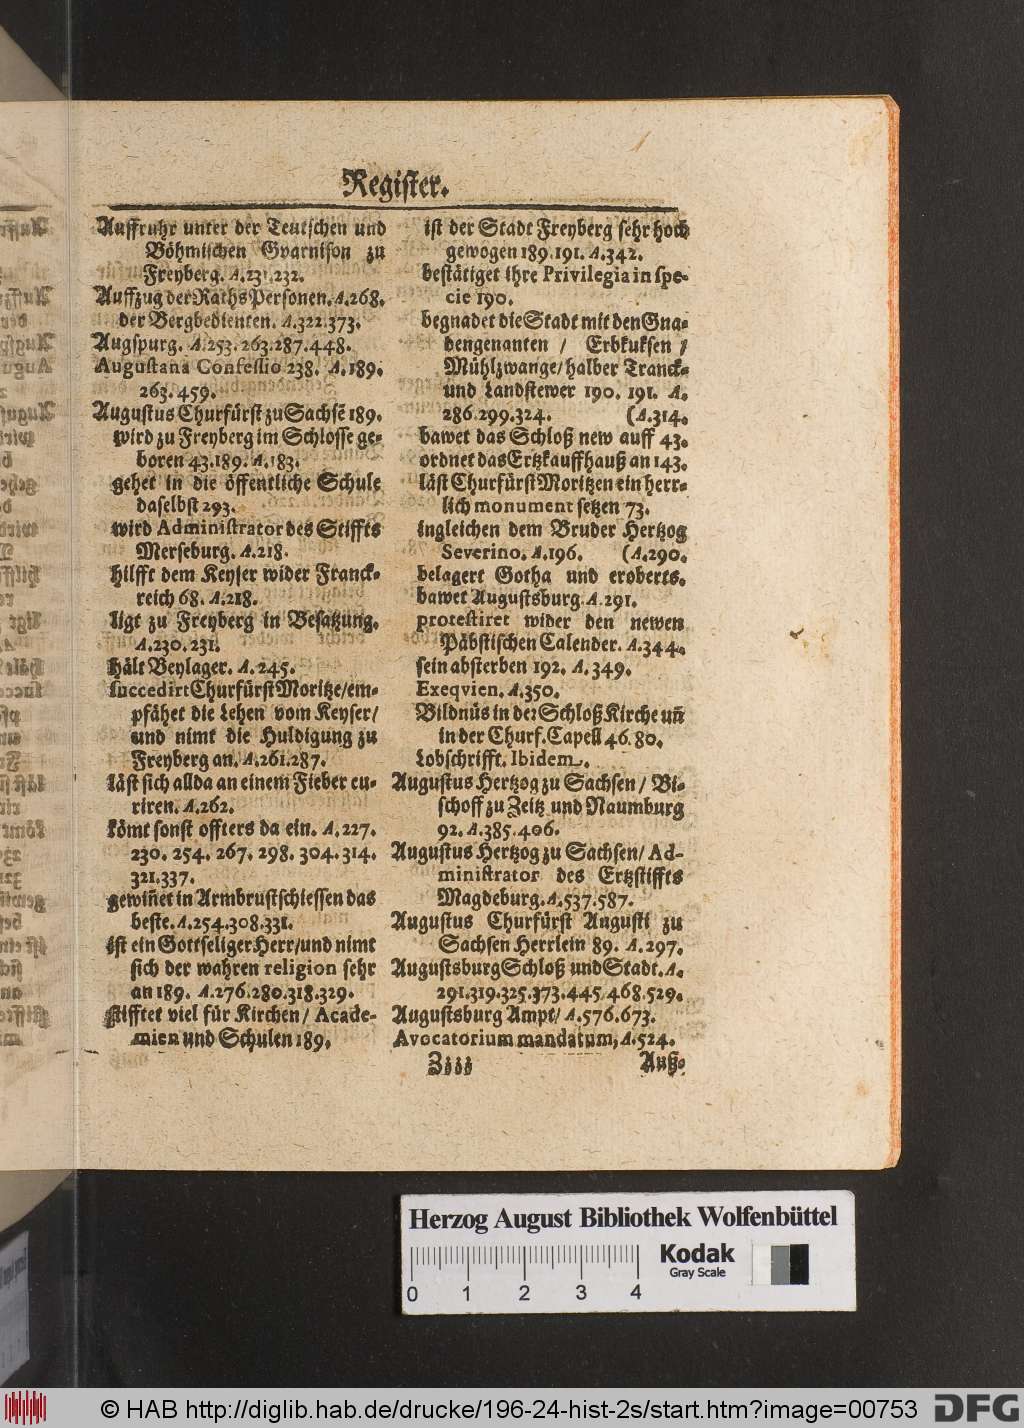 Register.
Auffruhr unter der Teutschen und
Böhmischen Gvarnison zu
Freyberg. A.231.232.
Auffzug der Raths Personen. A.268.
der Bergbedienten. A.322.373.
Augspurg. A.253.263.287.448.
Augustana Confessio 238. A.189.
263.459.
Augustus Churfürst zu Sachsē 189.
wird zu Freyberg im Schlosse ge-
boren 43.189. A.183.
gehet in die öffentliche Schule
daselbst 293.
wird Administrator des Stiffts
Merseburg. A.218.
hilfft dem Keyser wider Franck-
reich 68. A.218.
ligt zu Freyberg in Besatzung.
A.230.231.
hält Beylager. A.245.
succedirt Churfürst Moritze/em-
pfähet die Lehen vom Keyser/
und nimt die Huldigung zu
Freyberg an. A.261.287.
läst sich allda an einem Fieber cu-
riren. A.262.
kömt sonst offters da ein. A.227.
230. 254. 267. 298. 304. 314.
321.337.
gewiñet in Armbrustschiessen das
beste. A.254.308.331.
ist ein Gottseliger Herr/und nimt
sich der wahren religion sehr
an 189. A.276.280.318.329.
stifftet viel für Kirchen/ Acade-
mien und Schulen 189.
ist der Stadt Freyberg sehr hoch
gewogen 189.191. A.342.
bestätiget ihre Privilegia in spe-
cie 190.
begnadet die Stadt mit den Gna-
dengenanten / Erbkuksen /
Mühlzwange/ halber Tranck-
und Landstewer 190. 191. A.
286.299.324. (A.314.
bawet das Schloß new auff 43.
ordnet das Ertzkauffhauß an 143.
läst Churfürst Moritzen ein herr-
lich monument setzen 73.
ingleichen dem Bruder Hertzog
Severino. A.196. (A.290.
belagert Gotha und eroberts.
bawet Augustsburg. A.291.
protestiret wider den newen
Päbstischen Calender. A.344.
sein absterben 192. A.349.
Exeqvien. A.350.
Bildnüs in der Schloß Kirche uñ
in der Churf. Capell 46.80.
Lobschrifft. Ibidem.
Augustus Hertzog zu Sachsen / Bi-
schoff zu Zeitz und Naumburg
92. A.385.406.
Augustus Hertzog zu Sachsen/ Ad-
ministrator des Ertzstiffts
Magdeburg. A.537.587.
Augustus Churfürst Augusti zu
Sachsen Herrlein 89. A.297.
Augustsburg Schloß und Stadt. A.
291.319.325.373.445.468.529.
Augustsburg Ampt/ A.576.673.
Avocatorium mandatum, A.524.
Ziii
Auß-
Herzog August Bibliothek Wolfenbüttel
Kodak
Gray Scale
0 1 2 3 4
© HAB http://diglib.hab.de/drucke/196-24-hist-2s/start.htm?image=00753
DFG